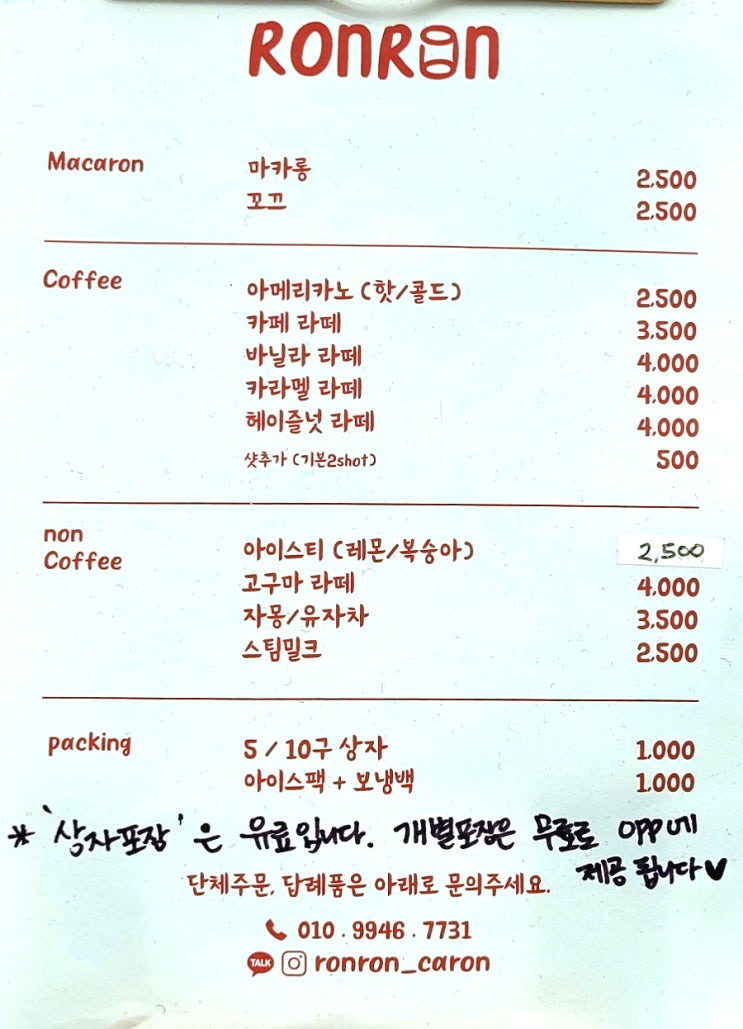 RONRON
Macaron
마카롱 2,500
꼬끄 2,500
Coffee
아메리카노 (핫/콜드) 2,500
카페 라떼 3,500
바닐라 라떼 4,000
카라멜 라떼 4,000
헤이즐넛 라떼 4,000
샷추가 (기본2shot) 500
non
Coffee
아이스티 (레몬/복숭아) 2,500
고구마 라떼 4,000
자몽/유자차 3,500
스팀밀크 2,500
packing
5 / 10구 상자 1,000
아이스팩 + 보냉백 1,000
* '상자포장' 은 유료입니다. 개별포장은 무료로 opp에
제공 됩니다♥
단체주문, 답례품은 아래로 문의주세요.
010 . 9946 . 7731
TALK ronron_caron